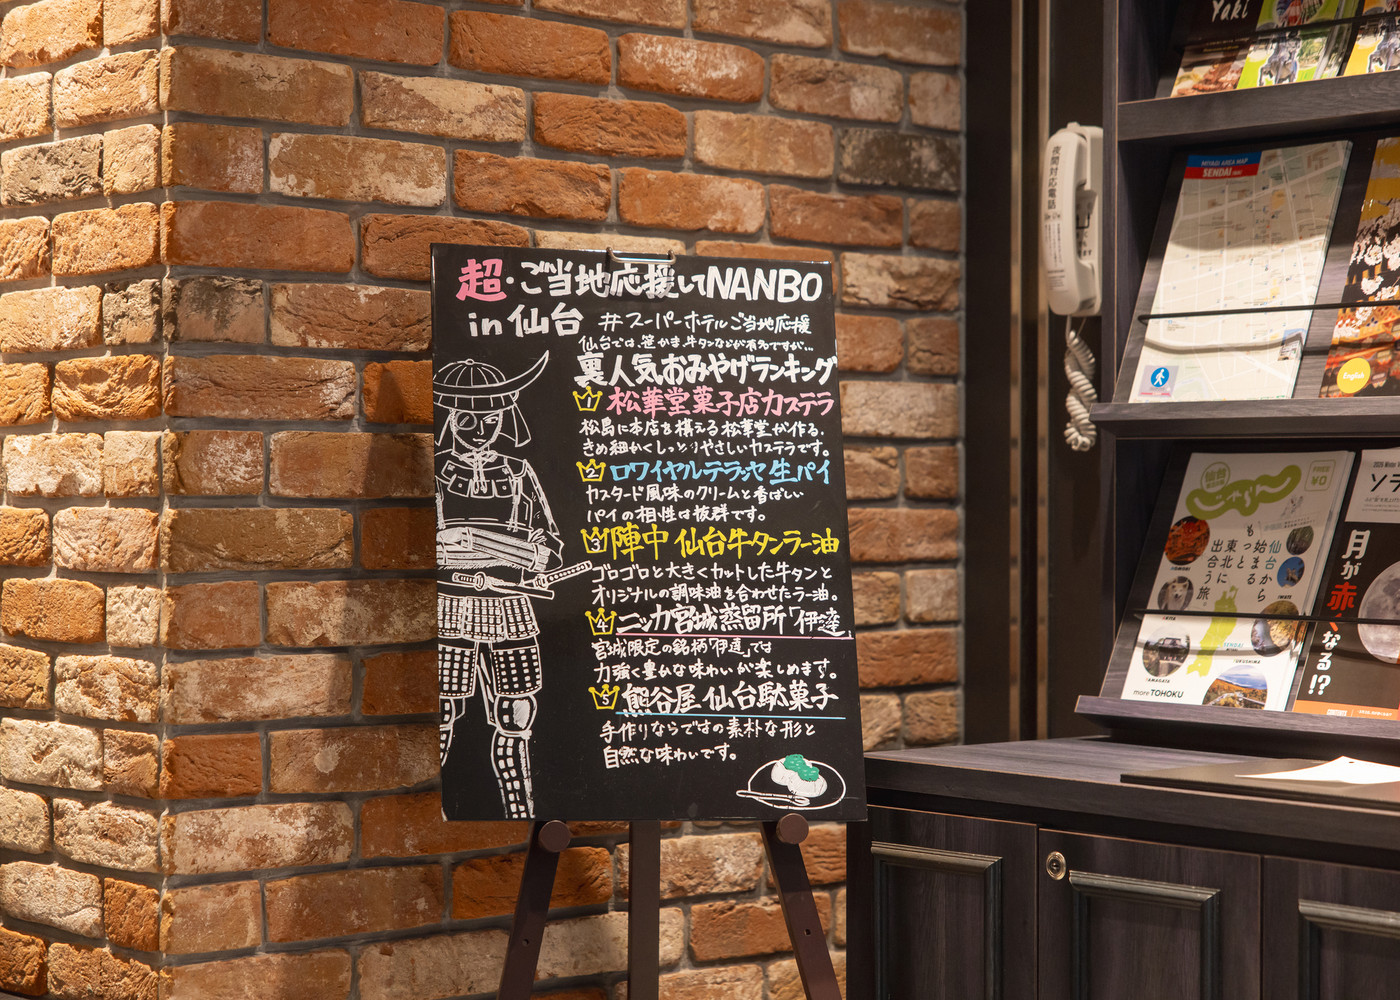 超・ご当地応援してNANBO
in 仙台 #スーパーホテルご当地応援
仙台では、笹かま、牛タンなどが有名ですが…
裏人気おみやげランキング
1 松華堂菓子店カステラ
松島に本店を構える松華堂が作る、
きめ細かくしっとりやさしいカステラです。
2 ロワイヤルテラッセ 生パイ
カスタード風味のクリームと香ばしい
パイの相性は抜群です。
3 陣中 仙台牛タンラー油
ゴロゴロと大きくカットした牛タンと
オリジナルの調味油を合わせたラー油。
4 ニッカ宮城蒸留所「伊達」
宮城限定の銘柄「伊達」では
力強く豊かな味わいが楽しめます。
5 熊谷屋 仙台駄菓子
手作りならではの素朴な形と
自然な味わいです。
夜間対応電話
Yaki
MIYAGI AREA MAP
SENDAI
English
仙台
FREE
¥0
仙台から
始まる
もっと
東北
出会う
旅
more TOHOKU
ソラ
月が赤くなる!?